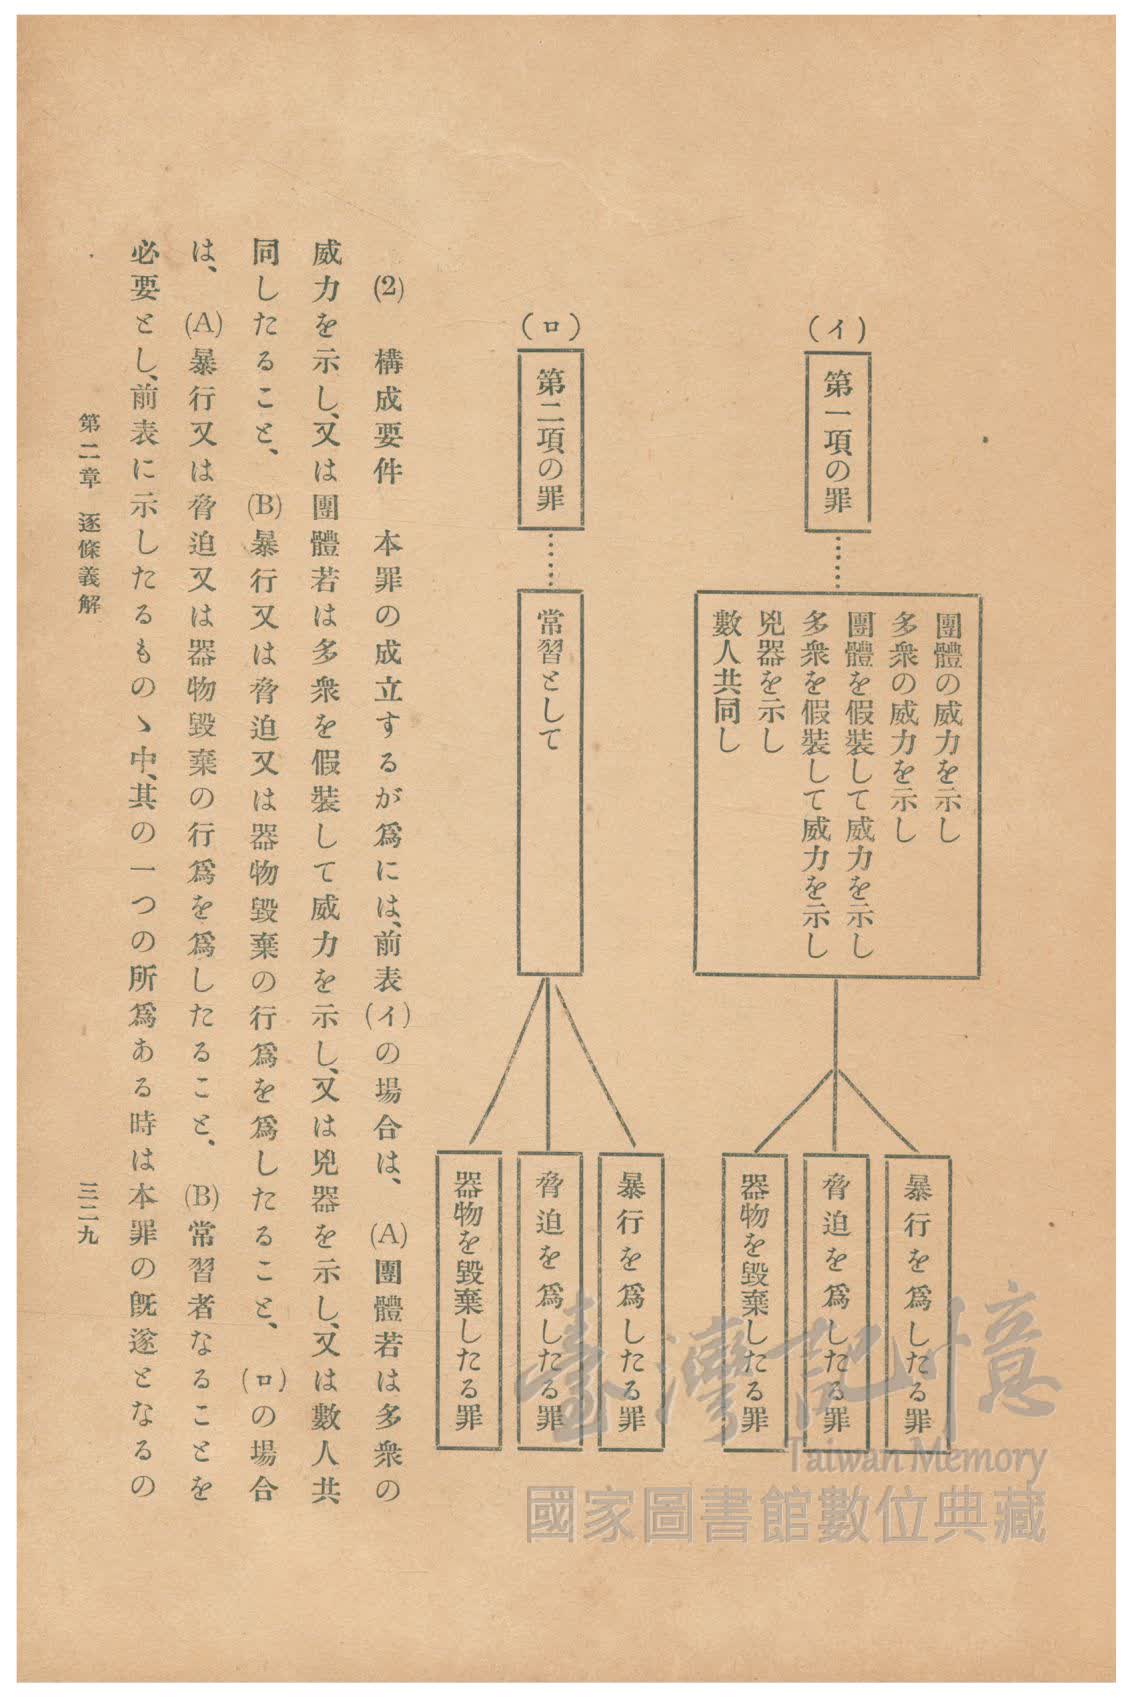 (イ)
第一項の罪
團體の威力を示し
多衆の威力を示し
團體を假裝して威力を示し
多衆を假裝して威力を示し
兇器を示し
數人共同し
暴行を爲したる罪
脅迫を爲したる罪
器物を毀棄したる罪
(ロ)
第二項の罪
常習として
暴行を爲したる罪
脅迫を爲したる罪
器物を毀棄したる罪
(2) 構成要件 本罪の成立するが爲には、前表(イ)の場合は、(A)團體若は多衆の
威力を示し、又は團體若は多衆を假裝して威力を示し、又は兇器を示し、又は數人共
同したること、(B)暴行又は脅迫又は器物毀棄の行爲を爲したること、(ロ)の場合
は、(A)暴行又は脅迫又は器物毀棄の行爲を爲したること、(B)常習者なることを
必要とし、前表に示したるものゝ中、其の一つの所爲ある時は本罪の旣遂となるの
第二章 逐條義解
三二九
臺灣記憶
Taiwan Memory
國家圖書館數位典藏